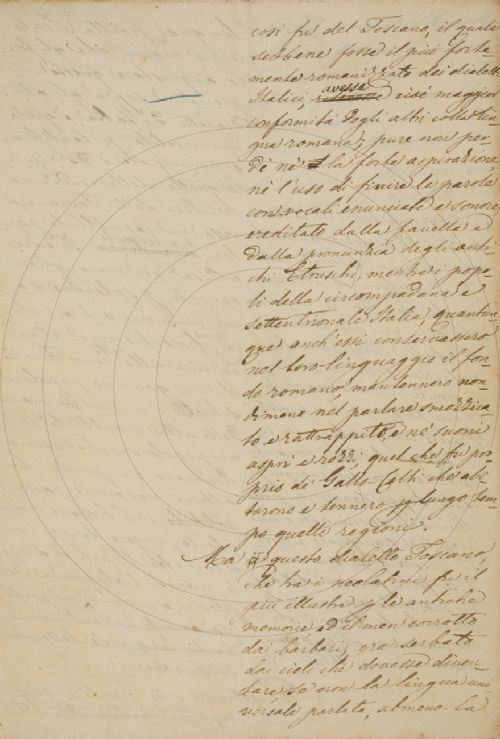 così fu del Toscano, il quale
sebbene fosse il più forte
mente romanizzato dei dialetti
Italici, avesse cioè maggior
conformità degli altri colla lin
gua romana; pure non per
dè nè la forte aspirazione
nè l'uso di finire le parole
con vocali enunciate e sonore
ereditato dalla favella e
dalla pronunzia degli anti
chi Etruschi, mentre i popo
li della circompadana e
settentrionale Italia, quantun
que anch'essi conservassero
nel loro linguaggio il fon
do romano, mantennero non
dimeno nel parlare smozzica
to e rattrappito, e ne' suoni
aspri e rozzi, quel che fu pro
prio de' Gallo Celti che abi
tarono e tennero p lungo tem
po quelle regioni.
Ma questo dialetto Toscano,
che tra i neolatini fu il
più illustre p le antiche
memorie ed il men corrotto
dai barbari, era serbato
dai cieli che dovesse diven
tare se non la lingua uni
versale parlata, almeno la